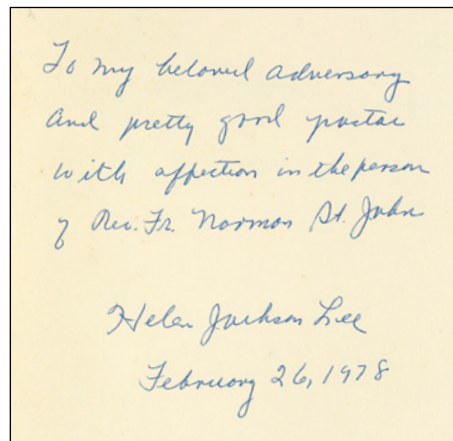 To my beloved adversary
and pretty good pastor
with affection in the person
of Rev. Fr. Norman St. John
Helen Jackson Lee
February 26, 1978